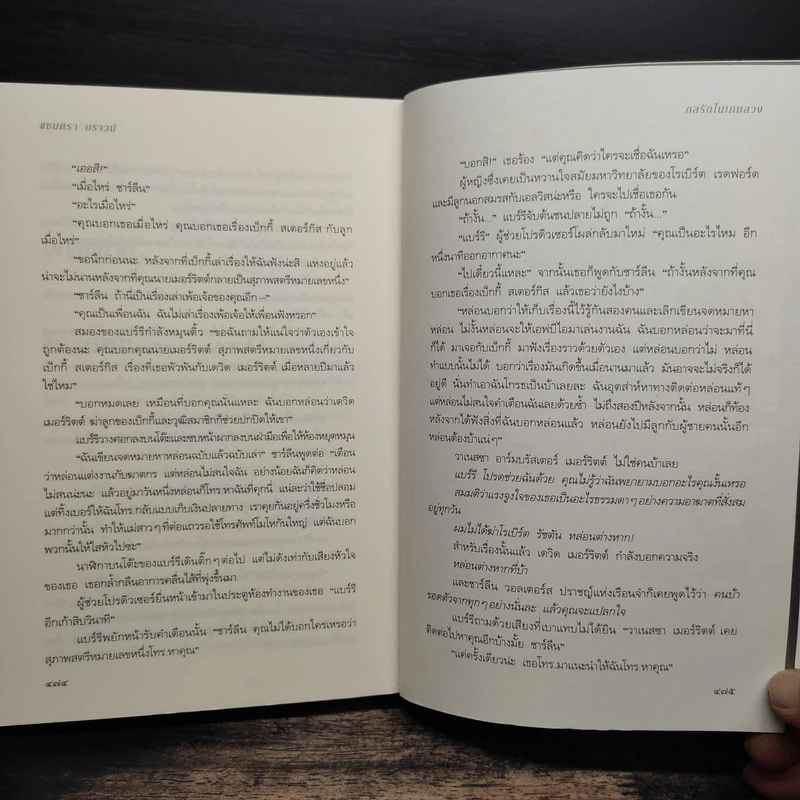 ซอนดรา บราวน์
“เออสิ!”
“เมื่อไหร่ ชาร์ลีน”
“อะไรเมื่อไหร่”
“คุณบอกเธอเมื่อไหร่ คุณบอกเธอเรื่องเบ็กกี้ สเตอร์กิส กับลูก
เมื่อไหร่”
“ขอนึกก่อนนะ หลังจากที่เบ็กกี้เล่าเรื่องให้ฉันฟังน่ะสิ แหงอยู่แล้ว
น่าจะไม่นานหลังจากที่คุณนายเมอร์ริตต์กลายเป็นสุภาพสตรีหมายเลขหนึ่ง”
“ชาร์ลีน ถ้านี่เป็นเรื่องเล่าเพ้อเจ้อของคุณอีก--”
“คุณเป็นเพื่อนฉัน ฉันไม่เล่าเรื่องเพ้อเจ้อให้เพื่อนฟังหรอก”
สมองของแบร์รีกำลังหมุนติ้ว “ขอฉันถามให้แน่ใจว่าตัวเองเข้าใจ
ถูกต้องนะ คุณบอกคุณนายเมอร์ริตต์ สุภาพสตรีหมายเลขหนึ่งเกี่ยวกับ
เบ็กกี้ สเตอร์กิส เรื่องที่เธอพัวพันกับเดวิด เมอร์ริตต์ เมื่อหลายปีมาแล้ว
ใช่ไหม”
“บอกหมดเลย เหมือนที่บอกคุณนั่นแหละ ฉันบอกหล่อนว่าเดวิด
เมอร์ริตต์ ฆ่าลูกของเบ็กกี้และวุฒิสมาชิกก็ช่วยปกปิดให้เขา”
แบร์รีวางศอกลงบนโต๊ะและซบหน้าผากลงบนฝ่ามือเพื่อให้ห้องหยุดหมุน
“ฉันเขียนจดหมายหาหล่อนฉบับแล้วฉบับเล่า” ชาร์ลีนพูดต่อ “เตือน
ว่าหล่อนแต่งงานกับฆาตกร แต่หล่อนไม่สนใจฉัน อย่างน้อยฉันก็คิดว่าหล่อน
ไม่สนน่ะนะ แล้วอยู่มาวันหนึ่งหล่อนก็โทร.หาฉันที่คุกนี่ แน่ละว่าใช้ชื่อปลอม
แต่ทิ้งเบอร์ให้ฉันโทร.กลับแบบเก็บเงินปลายทาง เราคุยกันอยู่ครึ่งชั่วโมงหรือ
มากกว่านั้น ทำให้แม่สาวๆ ที่ต่อแถวรอใช้โทรศัพท์โมโหกันใหญ่ แต่ฉันบอก
พวกนั้นให้ไสหัวไปซะ”
นาฬิกาบนโต๊ะของแบร์รีเดินติ๊กๆ ต่อไป แต่ไม่ดังเท่ากับเสียงหัวใจ
ของเธอ เธอกล้ำกลืนอาการคลื่นไส้ที่พุ่งขึ้นมา
ผู้ช่วยโปรดิวเซอร์ยื่นหน้าเข้ามาในประตูห้องทำงานของเธอ “แบร์รี
อีกเก้าสิบวินาที”
แบร์รีพยักหน้ารับคำเตือนนั้น “ชาร์ลีน คุณไม่ได้บอกใครเหรอว่า
สุภาพสตรีหมายเลขหนึ่งโทร.หาคุณ”
๔๗๔
กลรักในเกมลวง
“บอกสิ!” เธอร้อง “แต่คุณคิดว่าใครจะเชื่อฉันเหรอ”
ผู้หญิงซึ่งเคยเป็นหวานใจสมัยมหาวิทยาลัยของโรเบิร์ต เรดฟอร์ด
และมีลูกนอกสมรสกับเอลวิสน่ะหรือ ใครจะไปเชื่อเธอกัน
“ถ้างั้น...” แบร์รีจับต้นชนปลายไม่ถูก “ถ้างั้น...”
“แบร์รี” ผู้ช่วยโปรดิวเซอร์โผล่กลับมาใหม่ “คุณเป็นอะไรไหม อีก
หนึ่งนาทีออกอากาศนะ”
“ไปเดี๋ยวนี้แหละ” จากนั้นเธอก็พูดกับชาร์ลีน “ถ้างั้นหลังจากที่คุณ
บอกเธอเรื่องเบ็กกี้ สเตอร์กิส แล้วเธอว่ายังไงบ้าง”
“หล่อนบอกว่าให้เก็บเรื่องนี้ไว้รู้กันสองคนและเลิกเขียนจดหมายหา
หล่อน ไม่งั้นหล่อนจะให้เอฟบีไอมาเล่นงานฉัน ฉันบอกหล่อนว่าจะมาที่นี่
ก็ได้ มาเจอกับเบ็กกี้ มาฟังเรื่องราวด้วยตัวเอง แต่หล่อนบอกว่าไม่ หล่อน
ทำแบบนั้นไม่ได้ บอกว่าเรื่องมันเกิดขึ้นเมื่อนานมาแล้ว มันอาจจะไม่จริงก็ได้
อยู่ดี นั่นทำเอาฉันโกรธเป็นบ้าเลยละ ฉันอุตส่าห์หาทางติดต่อหล่อนแท้ๆ
แต่หล่อนไม่สนใจคำเตือนฉันเลยด้วยซ้ำ ไม่ถึงสองปีหลังจากนั้น หล่อนก็ท้อง
หลังจากได้ฟังสิ่งที่ฉันบอกหล่อนแล้ว หล่อนยังไปมีลูกกับผู้ชายคนนั้นอีก
หล่อนต้องบ้าแน่ๆ”
วาเนสซา อาร์มบรัสเตอร์ เมอร์ริตต์ ไม่ใช่คนบ้าเลย
แบร์รี โปรดช่วยฉันด้วย คุณไม่รู้ว่าฉันพยายามบอกอะไรคุณงั้นหรือ
สมมติว่าแรงจูงใจของเธอเป็นอะไรธรรมดาๆ อย่างความอาฆาตที่สั่งสม
อยู่ทุกวัน
ผมไม่ได้ฆ่าโรเบิร์ต รัชตัน หล่อนต่างหาก!
สำหรับเรื่องนั้นแล้ว เดวิด เมอร์ริตต์ กำลังบอกความจริง
หล่อนต่างหากที่บ้า
และชาร์ลีน วอลเตอร์ส ปราชญ์แห่งเรือนจำก็เคยพูดไว้ว่า คนบ้า
รอดตัวจากทุกๆ อย่างนั่นละ แล้วคุณจะแปลกใจ
แบร์รีถามด้วยเสียงที่เบาแทบไม่ได้ยิน “วาเนสซา เมอร์ริตต์ เคย
ติดต่อไปหาคุณอีกบ้างมั้ย ชาร์ลีน”
“แค่ครั้งเดียวน่ะ เธอโทร.มาแนะนำให้ฉันโทร.หาคุณ”
๔๗๕